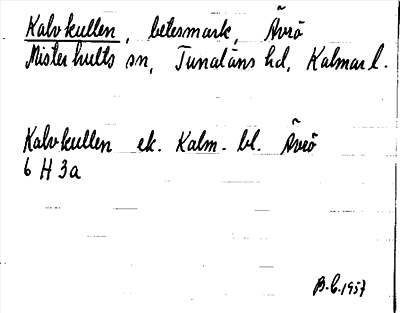 Kalvkullen, betesmark, Ävrö
Misterhults sn, Tunaläns hd, Kalmar l.
Kalvkullen ek. Kalm. bl. Ävrö
6 H 3a
B.C. 1957